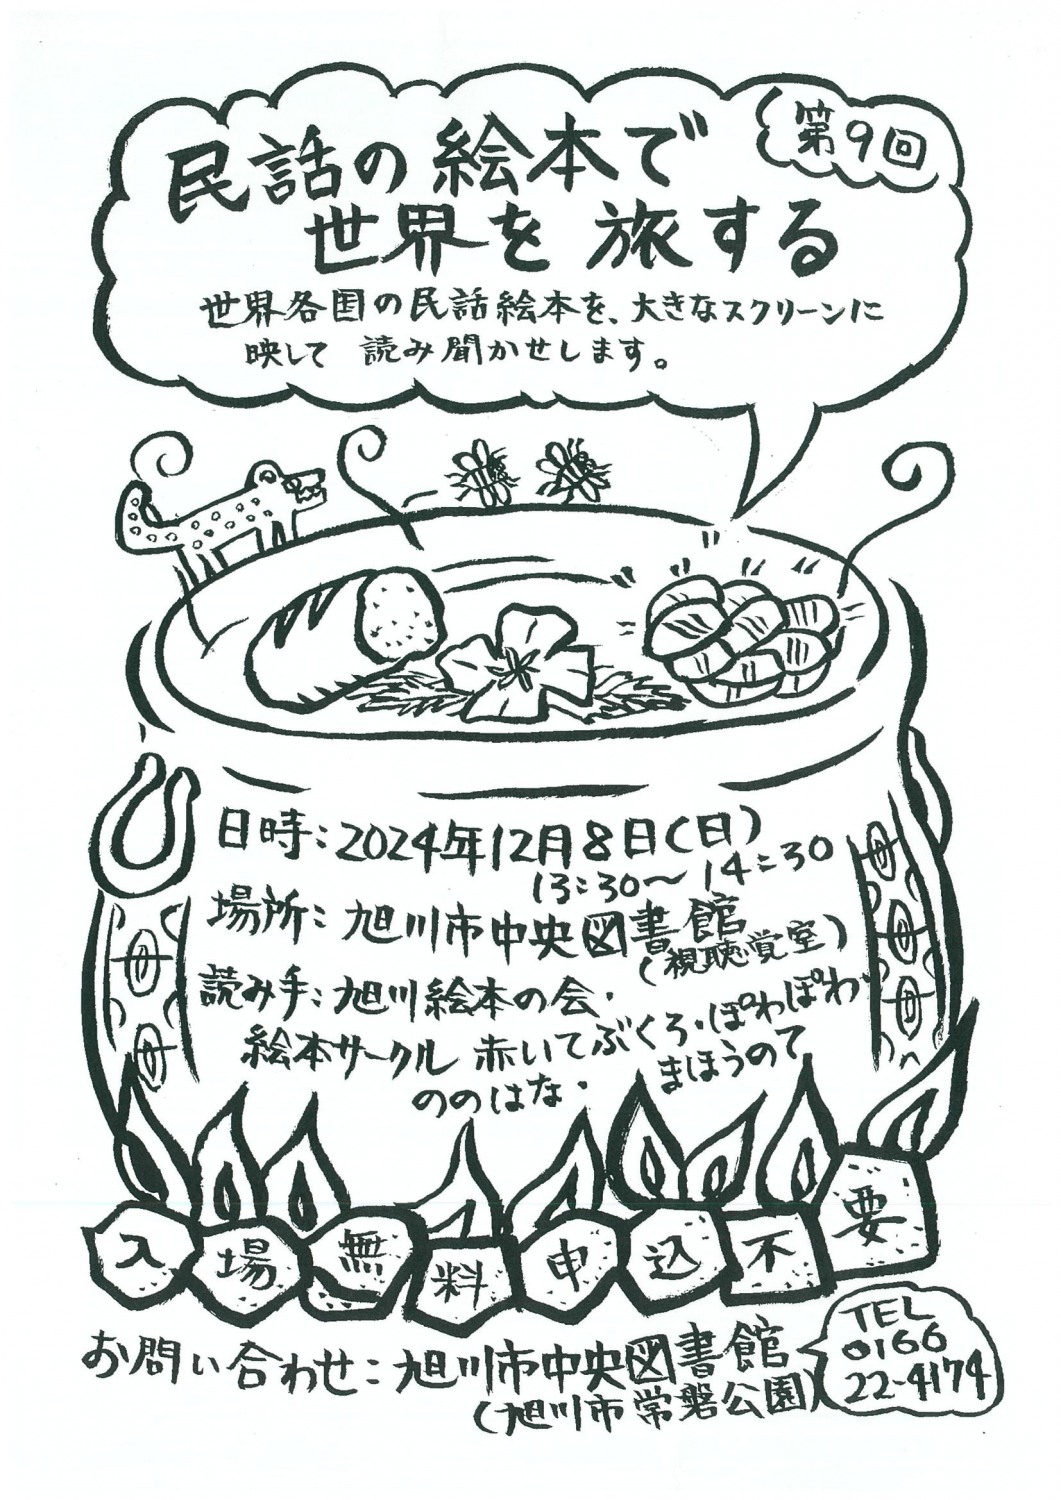 第9回
民話の絵本で
世界を旅する
世界各国の民話絵本を、大きなスクリーンに
映して 読み聞かせします。
日時:2024年12月8日(日)
13:30〜14:30
場所:旭川市中央図書館
(視聴覚室)
読み手:旭川絵本の会・
絵本サークル 赤いてぶくろ・ぽわぽわ・
ののはな・まほうのて
入場無料申込不要
お問い合わせ:旭川市中央図書館
(旭川市常磐公園)
TEL
0166
22-4174